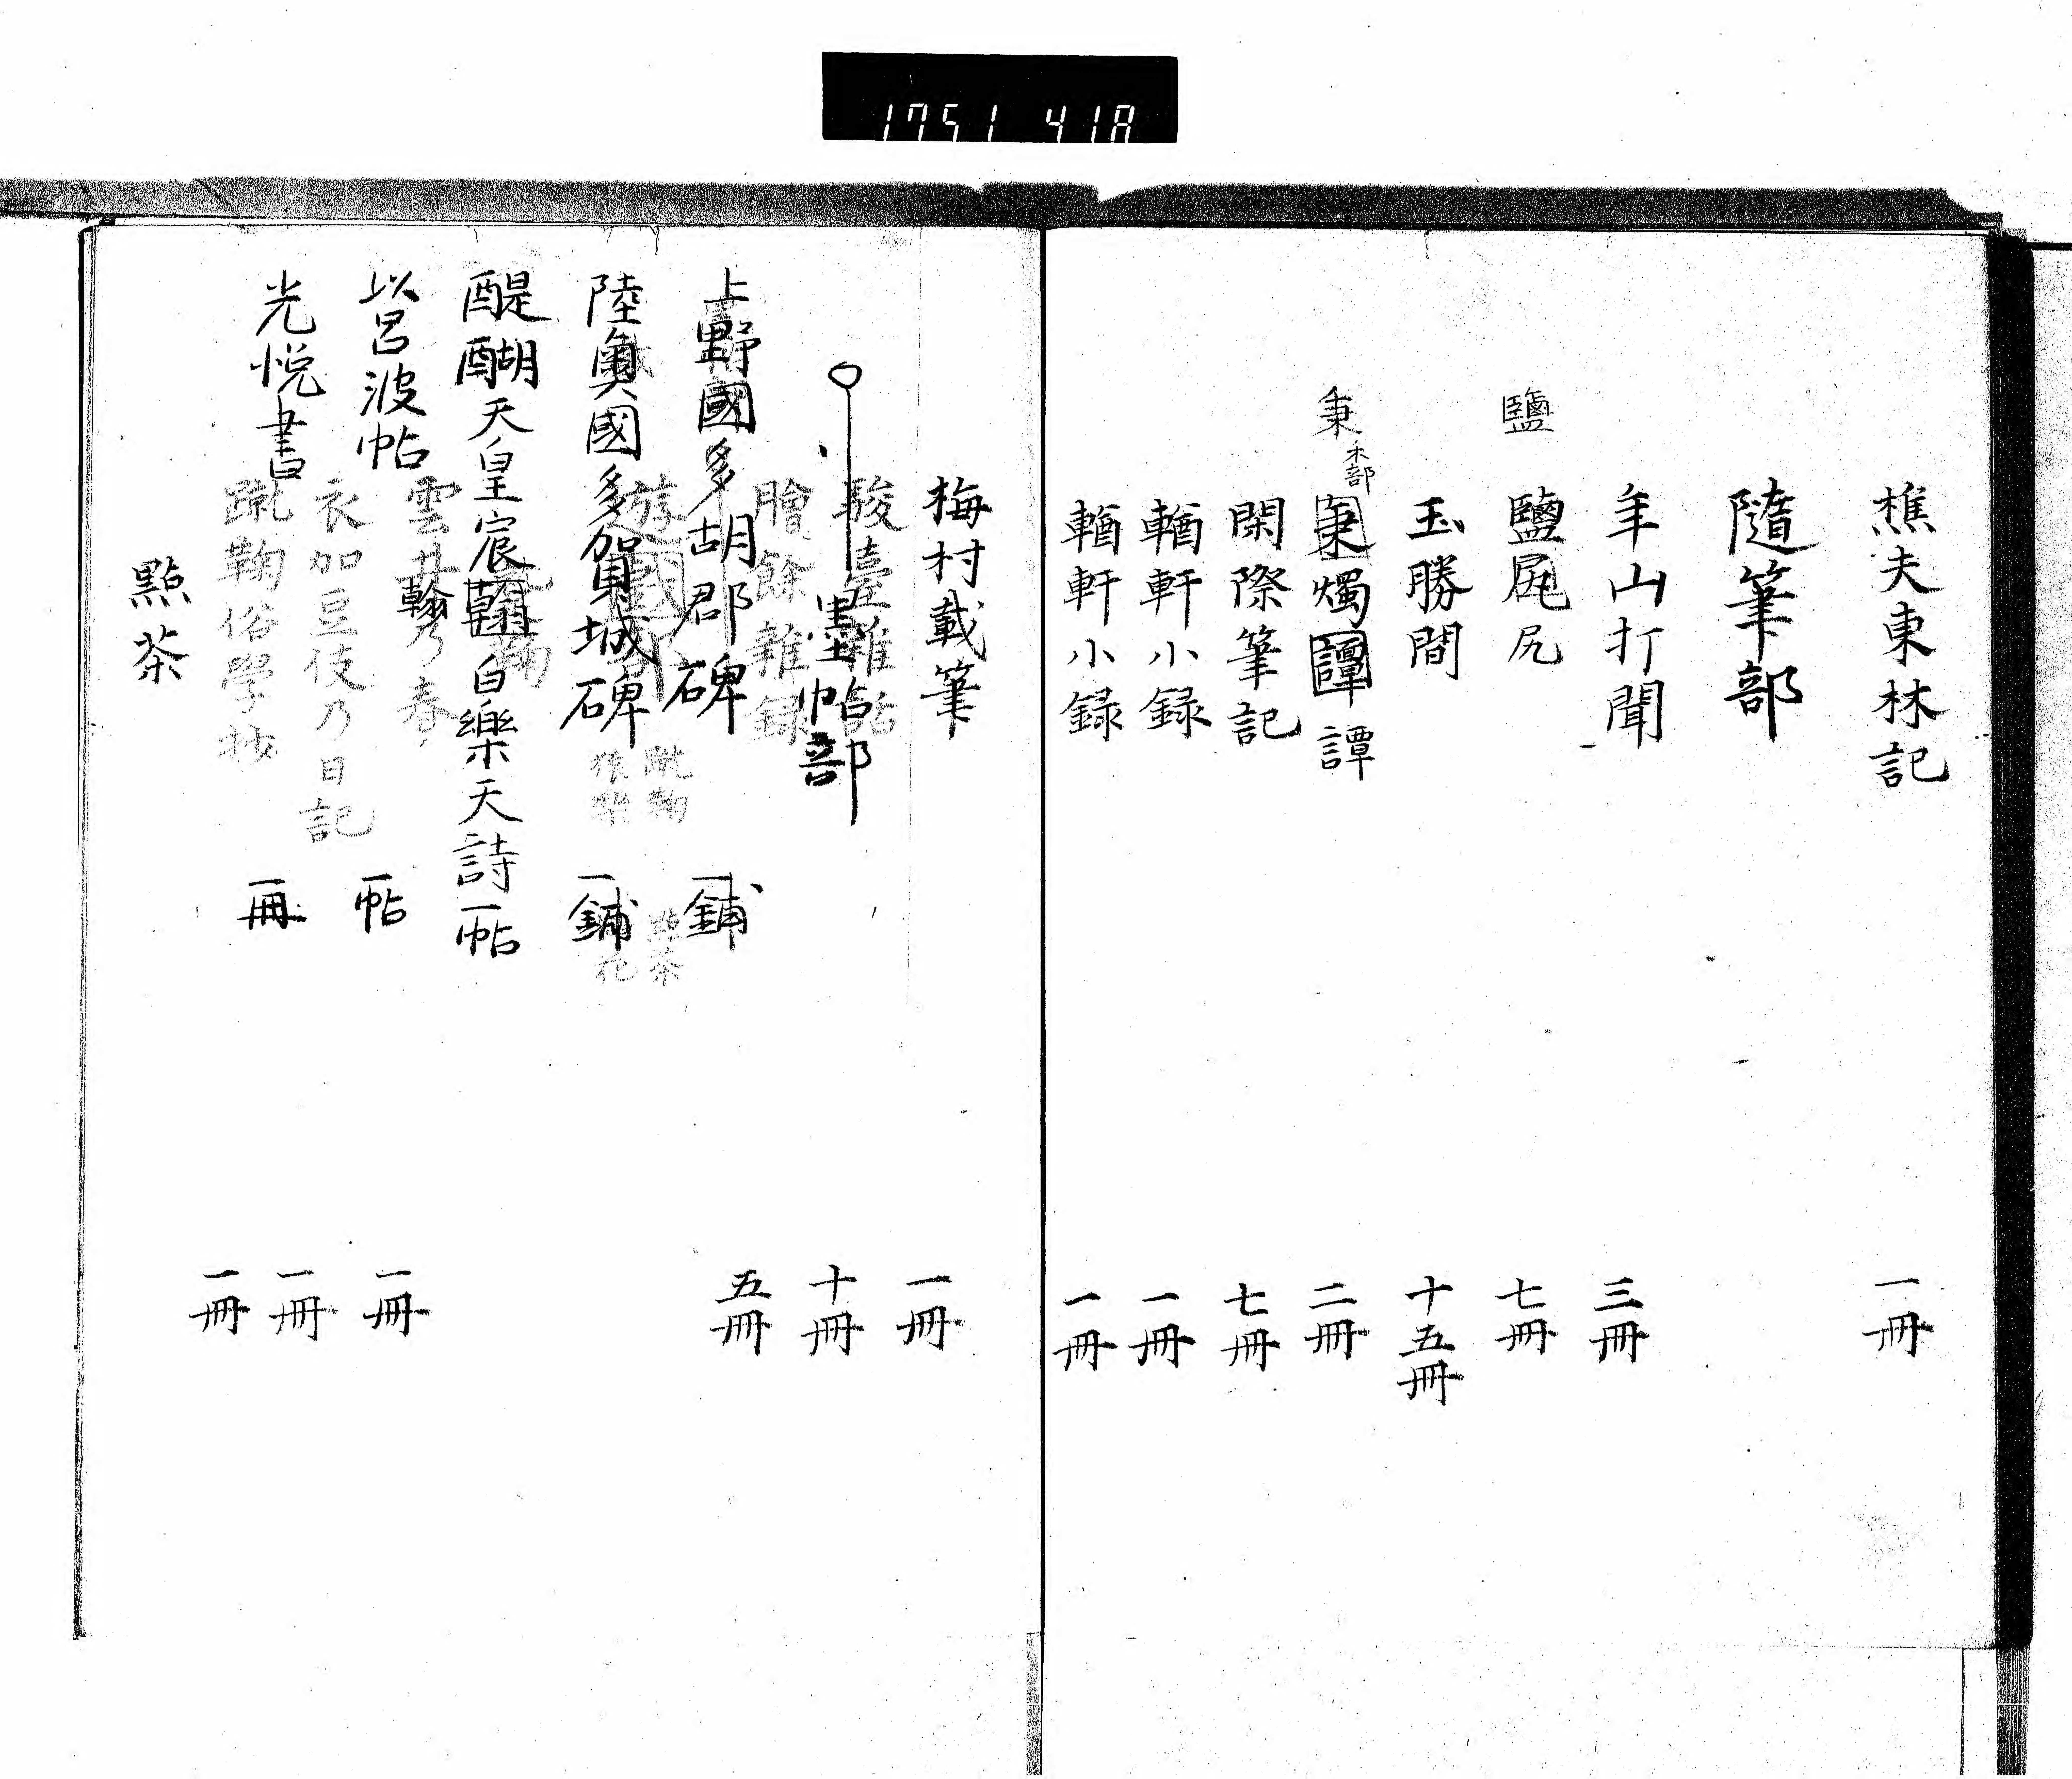 1751 418
樵夫東林記 一冊
隨筆部
年山打聞 三冊
鹽
鹽尻尻 七冊
玉勝間 十五冊
秉 禾部
秉燭譚譚 二冊
閑際筆記 七冊
輶軒小録 一冊
輶軒小録 一冊
梅村載筆 一冊
駿臺雜話 十冊
墨帖部
膾餘雜録 五冊
上野國多胡郡碑 一鋪
蹴鞠 點茶
猿樂 花
陸奧國多賀城碑 一鋪
醍醐天皇宸翰白樂天詩 一帖
翰
雲井乃春 一冊
以呂波帖 一帖
衣加豆伎乃日記 一冊
光悦書 一冊
蹴鞠俗學抄 一冊
點茶